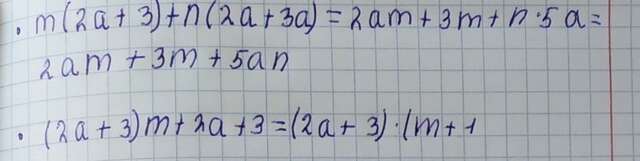 . m(2a + 3) + n(2a + 3a) = 2am + 3m + n · 5a =
2am + 3m + 5an
· (2a + 3)m + 2a + 3 = (2a + 3) · (m + 1